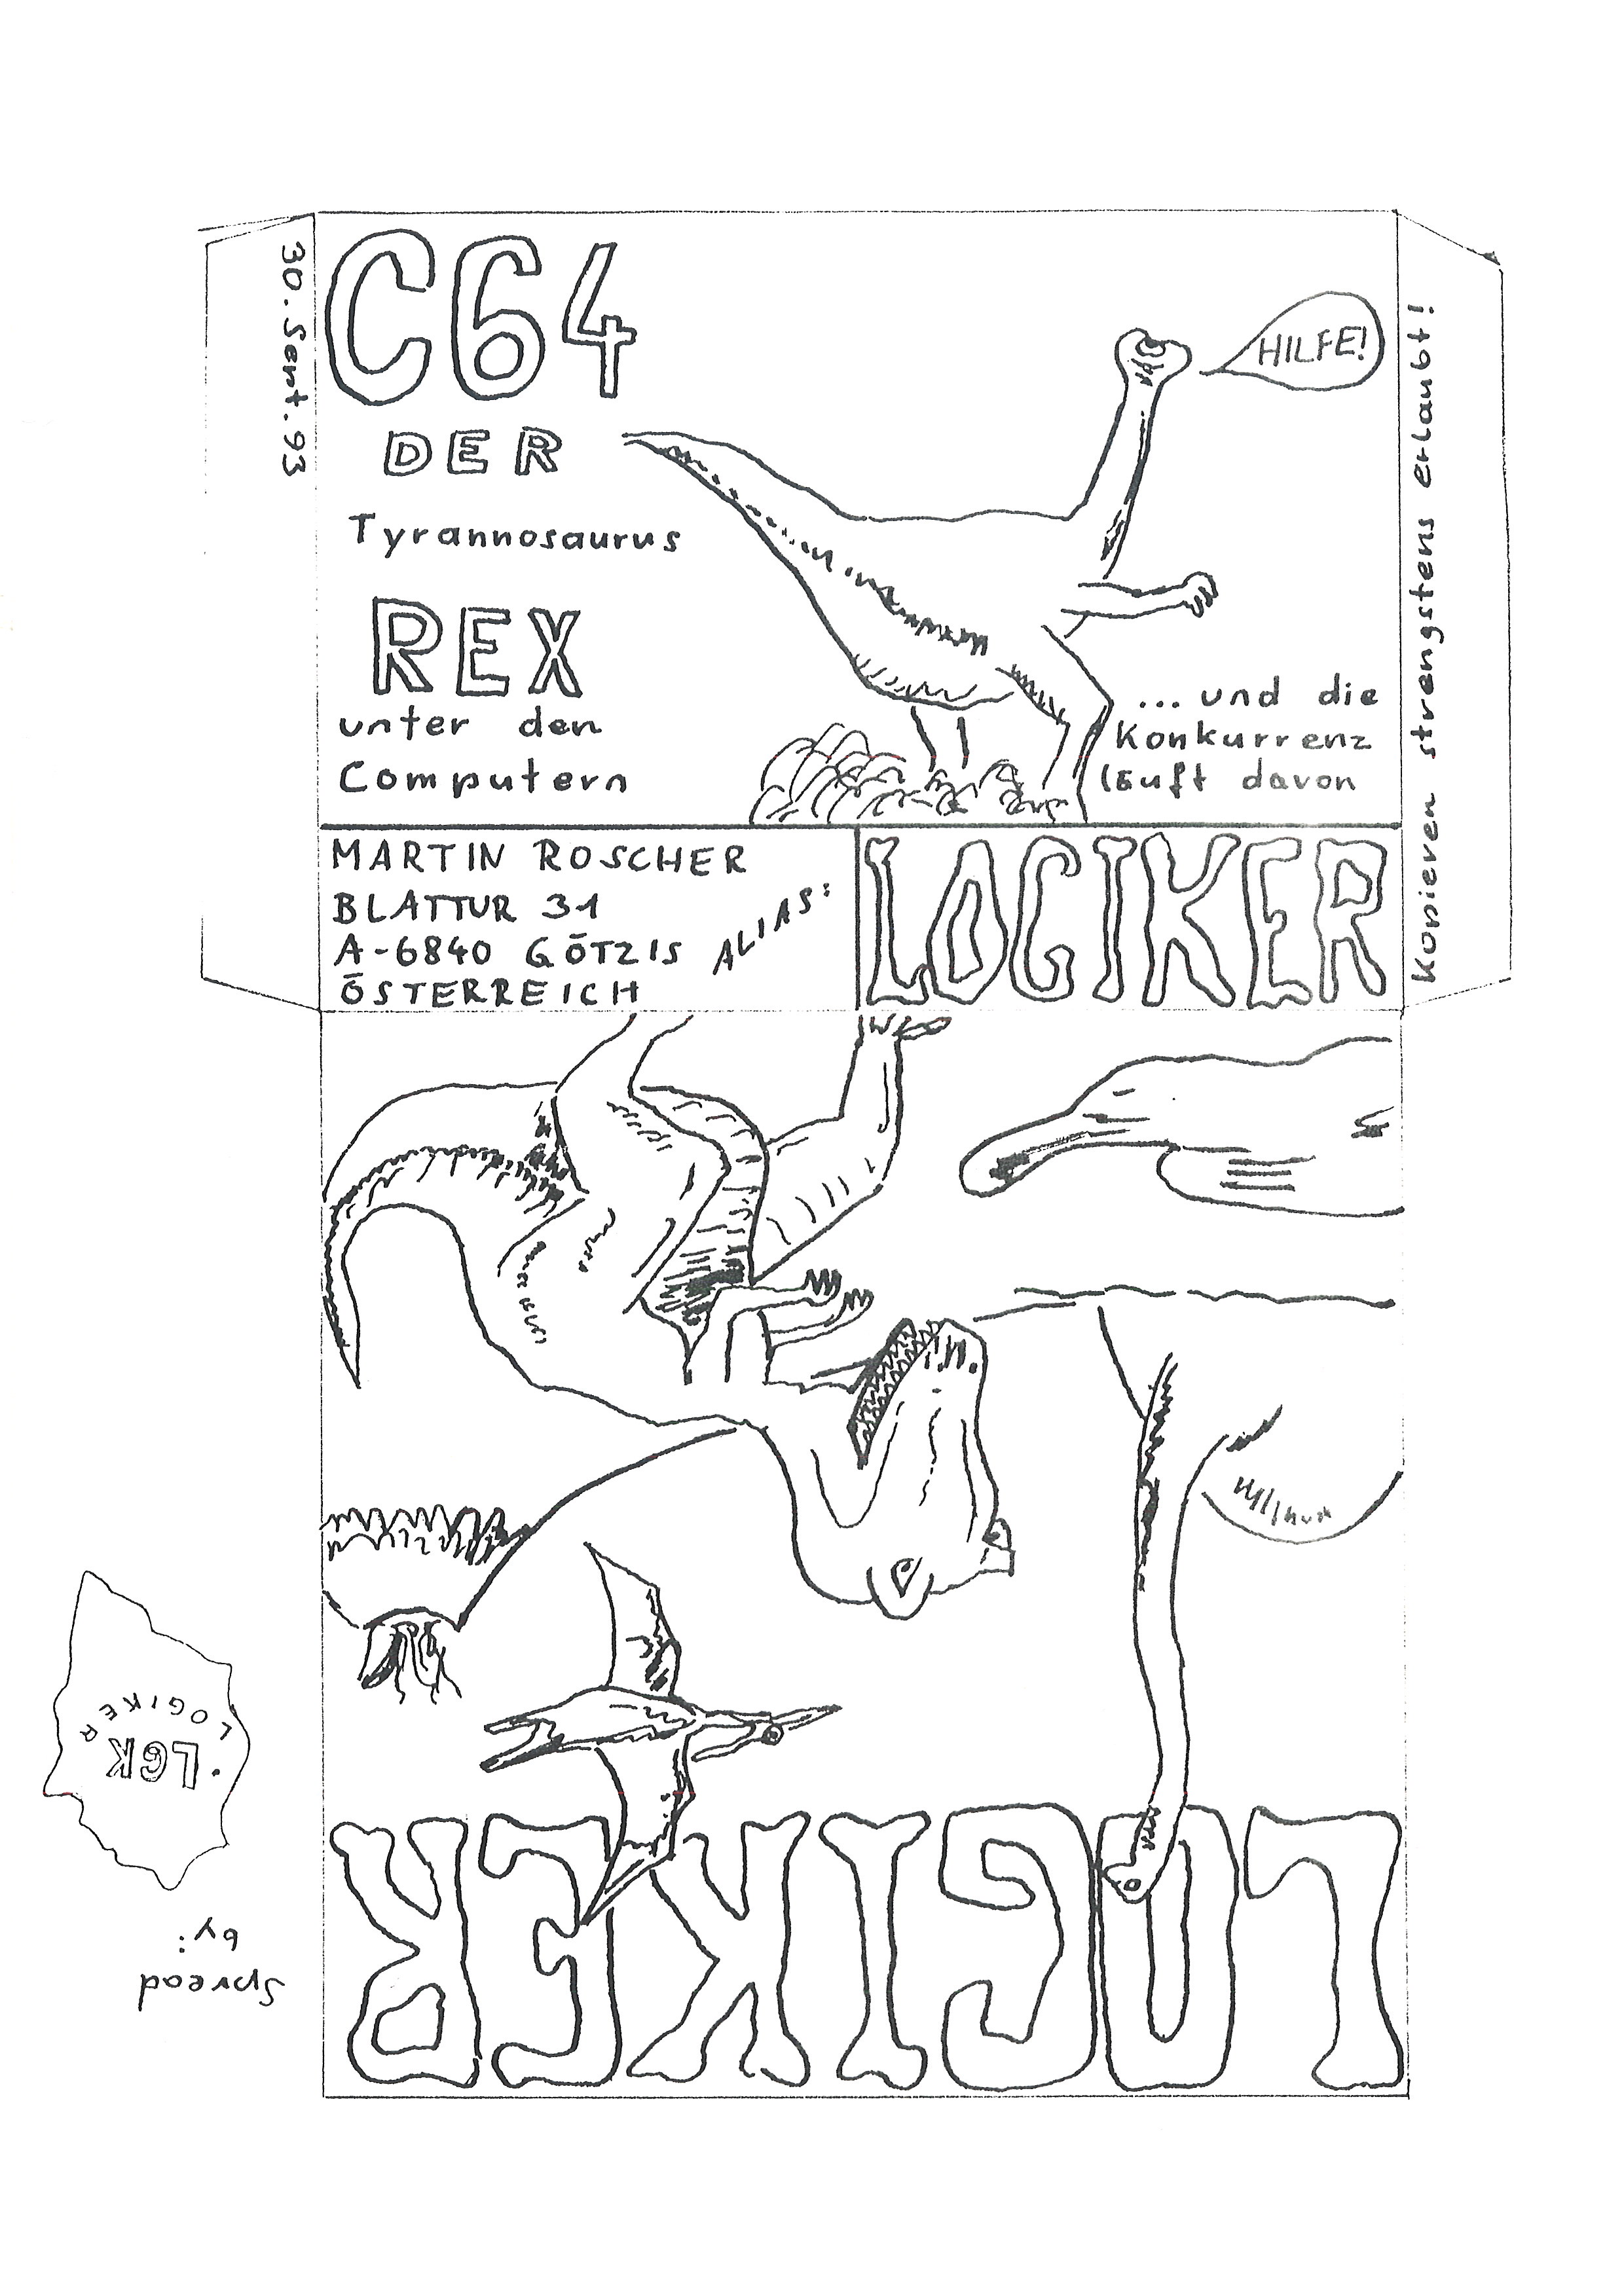 C64
DER
Tyrannosaurus
REX
unter den
Computern
HILFE!
... und die
Konkurrenz
läuft davon
30. Sept. 93
Kopieren strengstens erlaubt!
MARTIN ROSCHER
BLATTUR 31
A-6840 GÖTZIS
ÖSTERREICH
ALIAS:
LOGIKER
LOGIKER
LOGIKER
LGK
Spread
by: